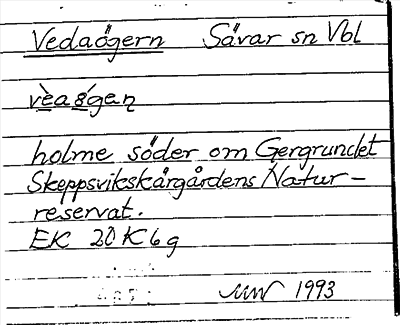 Vedaögern Sävar sn Vbl
holme söder om Gergrundet
Skeppsvikskärgårdens Natur-
reservat.
EK 20K6g
1993